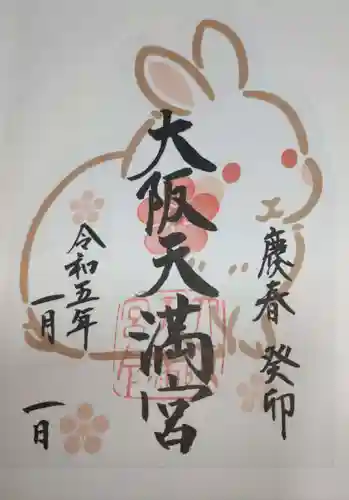 慶春 癸卯
大阪天満宮
令和五年
一月
一日